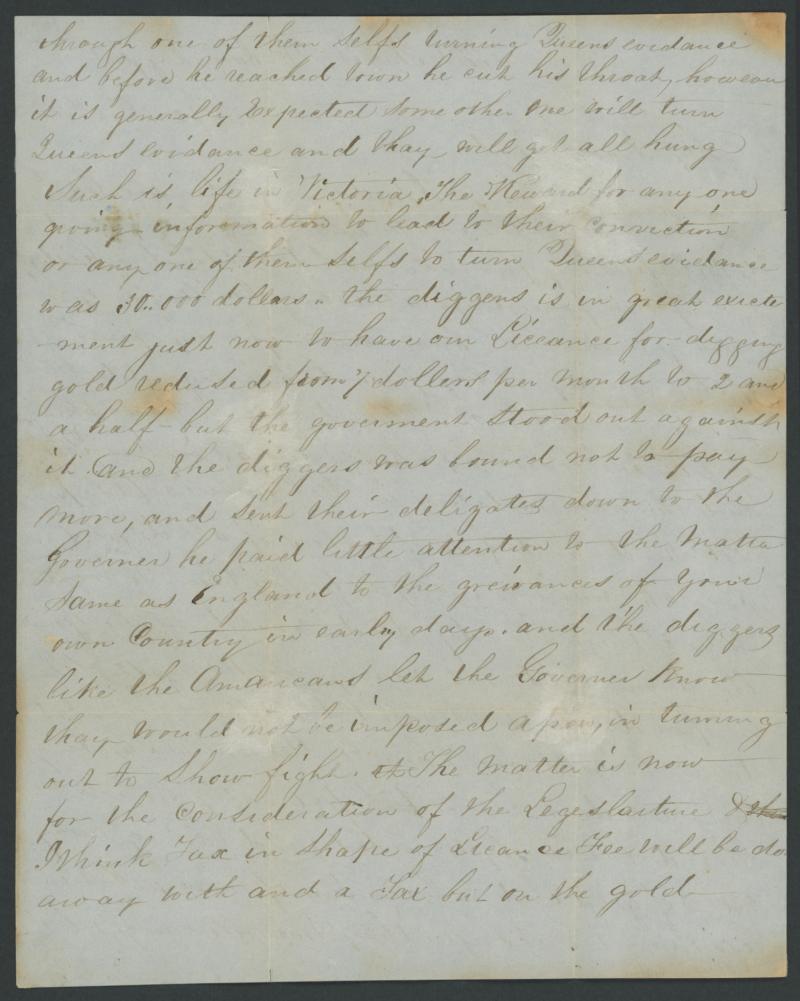 through one of them selfs turning Queens evidance
and before he reached town he cut his throat, however
it is generally Expected some other one will turn
Queens evidance and thay will get all hung
Such is life in Victoria, The Reward for any one
giving information to lead to their conviction
or any one of them selfs to turn Queens evidance
was 30..000 dollars. the diggens is in great excite
-ment just now to have our Liceance for digging
gold redused from 7 dollers per month to 2 and
a half but the goverment stood out against
it. and the diggers was bound not to pay
more, and sent their deligates down to the
Governer he paid little attention to the Matter
same as England to the greivances of your
own Country in early days. and the diggers
like the Amaricans let the Governer know
thay would not be imposed apon, in turning
out to Show fight. The matter is now
for the Consideration of the Legeslasture &
I think Tax in shape of Liceance Fee will be do
away with and a Tax but on the gold